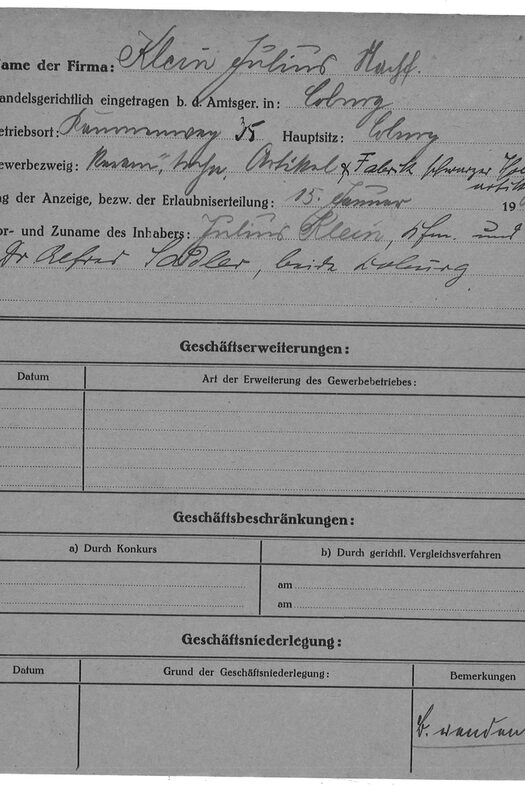 ame der Firma: Klein Julius Nachf.
andelsgerichtlich eingetragen b. d. Amtsger. in: Coburg
etriebsort: 35 Hauptsitz: Coburg
ewerbezweig: Artikel & Fabrik schwarzer
artik
g der Anzeige, bezw. der Erlaubniserteilung: 15. Januar 19
or- und Zuname des Inhabers: Julius Klein, Kfm. und
Dr Alfred Sadler, beide Coburg
Geschäftserweiterungen:
Datum Art der Erweiterung des Gewerbebetriebes:
Geschäftsbeschränkungen:
a) Durch Konkurs b) Durch gerichtl. Vergleichsverfahren
am
am
Geschäftsniederlegung:
Datum Grund der Geschäftsniederlegung: Bemerkungen
b. wenden